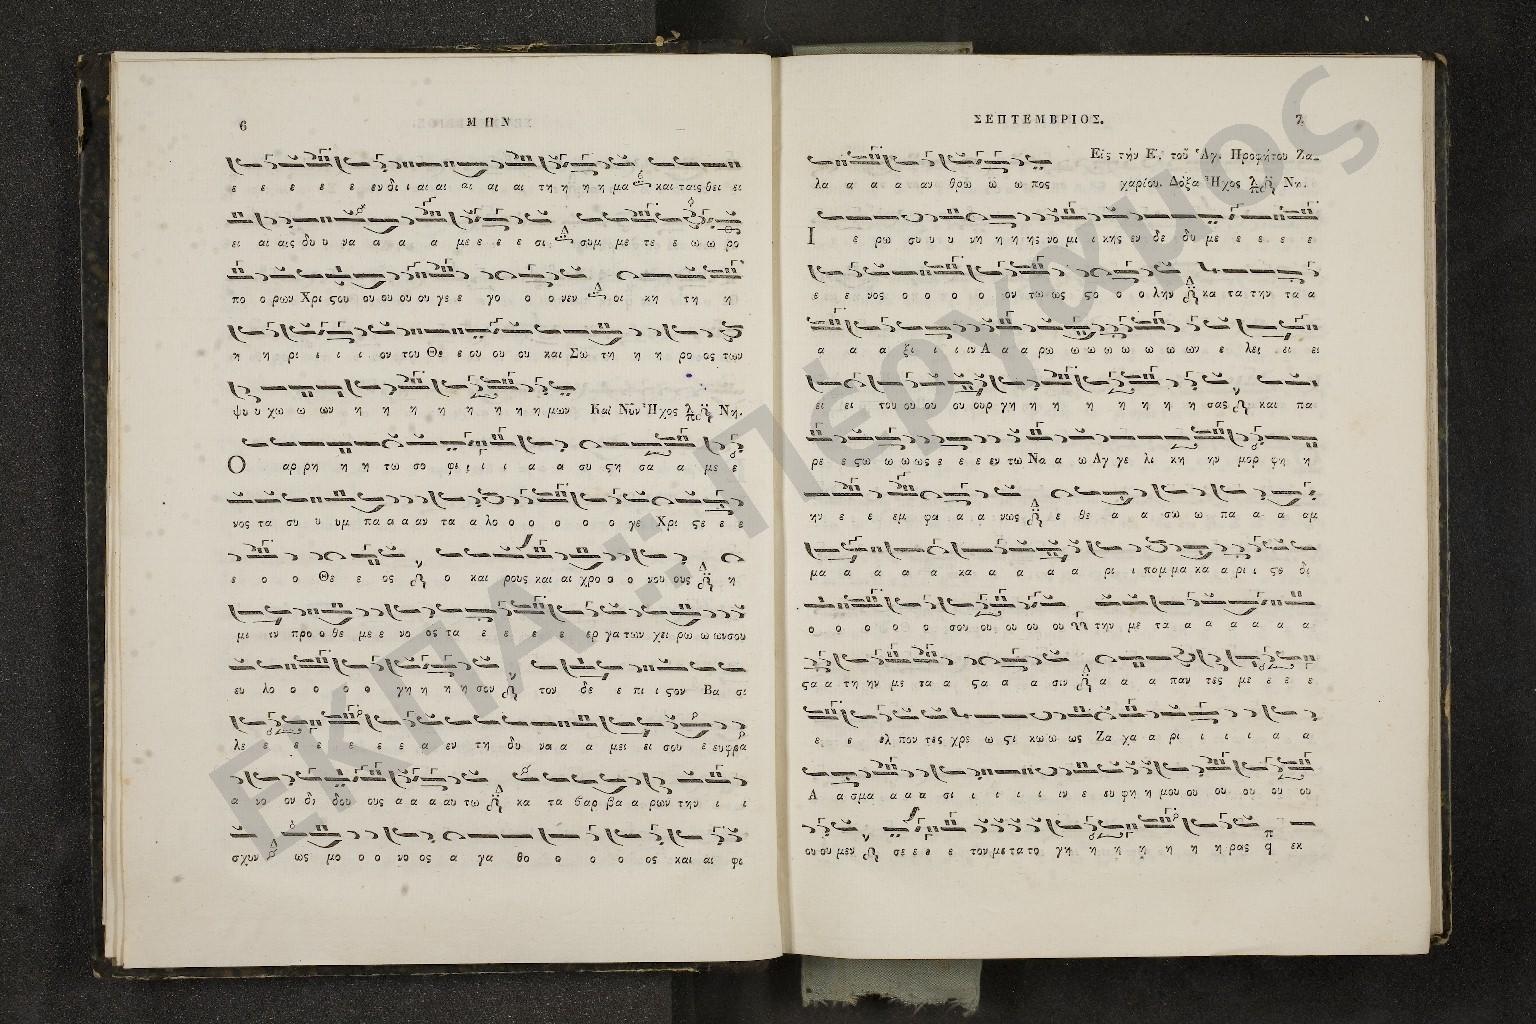 6
ΜΗΝ
ε ε ε ε ε εν δι ι αι αι αι αι αι τη η η η μα και ταις θει ει
ει αι αις δυ υ να α α α με ε ε ε σι συμ με τε ε ω ω ρο
πο ο ρων Χρι ςου ου ου ου ου γε ε γο ο ο νεν οι κη τη η
η η ρι ι ι ι ον του Θε ε ου ου ου και Σω τη η η ρο ος των
ψυ υ χω ω ων η η η η η η η η μων Και Νυν Ήχος Νη.
Ο αρ ρη η η τω σο φι ι ι ι α α συ ςη σα α με ε
νος τα συ υ υμ πα α α αν τα α λο ο ο ο ο ο γε Χρι ςε ε ε
ε ο ο Θε ε ος ο και ρους και αι χρο ο ο νου ους η
μι ιν προ ο θε με ε νο ος τα ε ε ε ε ερ γα των χει ρω ω ων σου
ευ λο ο ο ο ο γη η η η σον τον δε ε πι ι ςον Βα σι
λε ε ε ε ε ε ε α εν τη δυ να α α μει ει σου ε ευφρα
α νο ον δι δου ους α α α αυ τω κα τα βαρ βα α ρων την ι ι
σχυν ως μο ο ο νο ος α γα θο ο ο ο ος και αι φι
ΣΕΠΤΕΜΒΡΙΟΣ.
7
λα α α α αν θρω ω ω πος
Εἰς τὴν Ε΄. τοῦ Ἁγ. Προφήτου Ζα-
χαρίου. Δόξα Ἦχος Νη.
Ι ε ρω συ υ υ νη η η ης νο μι ι κης εν δε δυ με ε ε ε ε
ε ε νος ο ο ο ο ον τω ως ςο ο ο λην κα τα την τα α
α α α ξι ι ι ιν Α α α ρω ω ω ω ω ω ω ων ε λει ει ει
ει ει του ου ου ου ουρ γη η η η η η η η σας και πα
ρε ε ςω ω ω ως ε ε ε εν τω Να α ω Αγ γε λι κη ην μορ φη η
ην ε ε εμ φα α α νως ε θε α α σω ω πα α α αμ
μα α α α α κα α α α α ρι ι πομ μα κα α ρι ι ςε δι
ο ο ο ο ο σου ου ου ου ου την με τα α α α α α
ςα α τη ην με τα α ςα α α σιν α α α παν τες με ε ε ε
ε ε ελ πον τες χρε ω ςι κω ω ως Ζα χα α ρι ι ι ι α α
Α α σμα α α α σι ι ι ι ι ιν ε ευ φη η μου ου ου ου ου ου
ου ου μεν σε ε ε ε τον με τα το γη η η η η η η ρας εκ
ΕΚΠΑ :: Πέργαμος